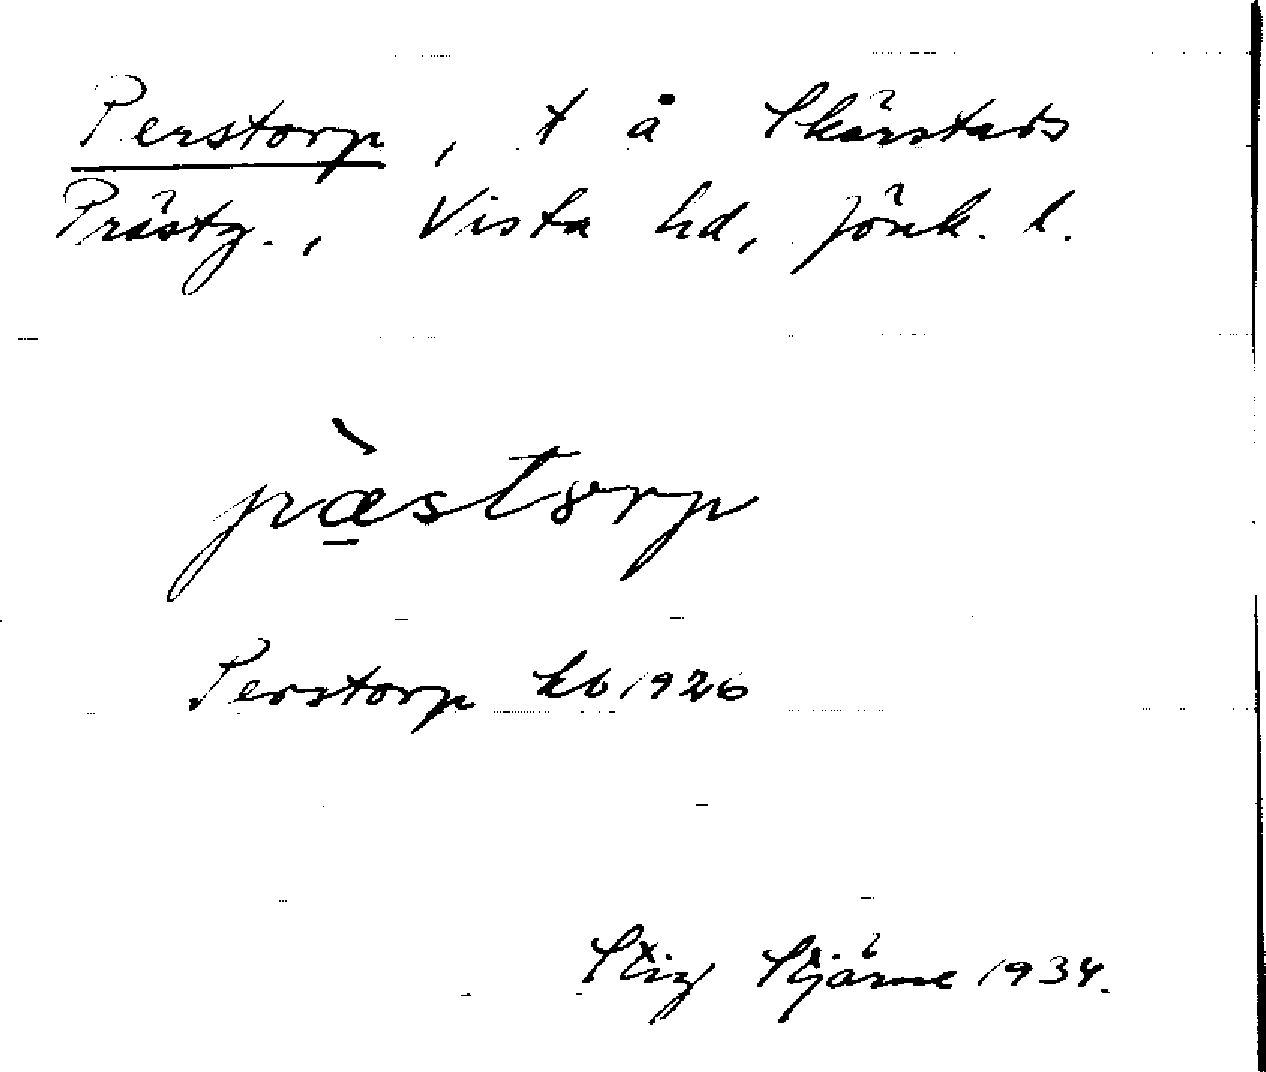 Perstorp, t å Skärstads
Prästg., Vista hd, Jönk. l.
pæ̠̀storp
Perstorp kb 1926
Stig Stjärne 1934.